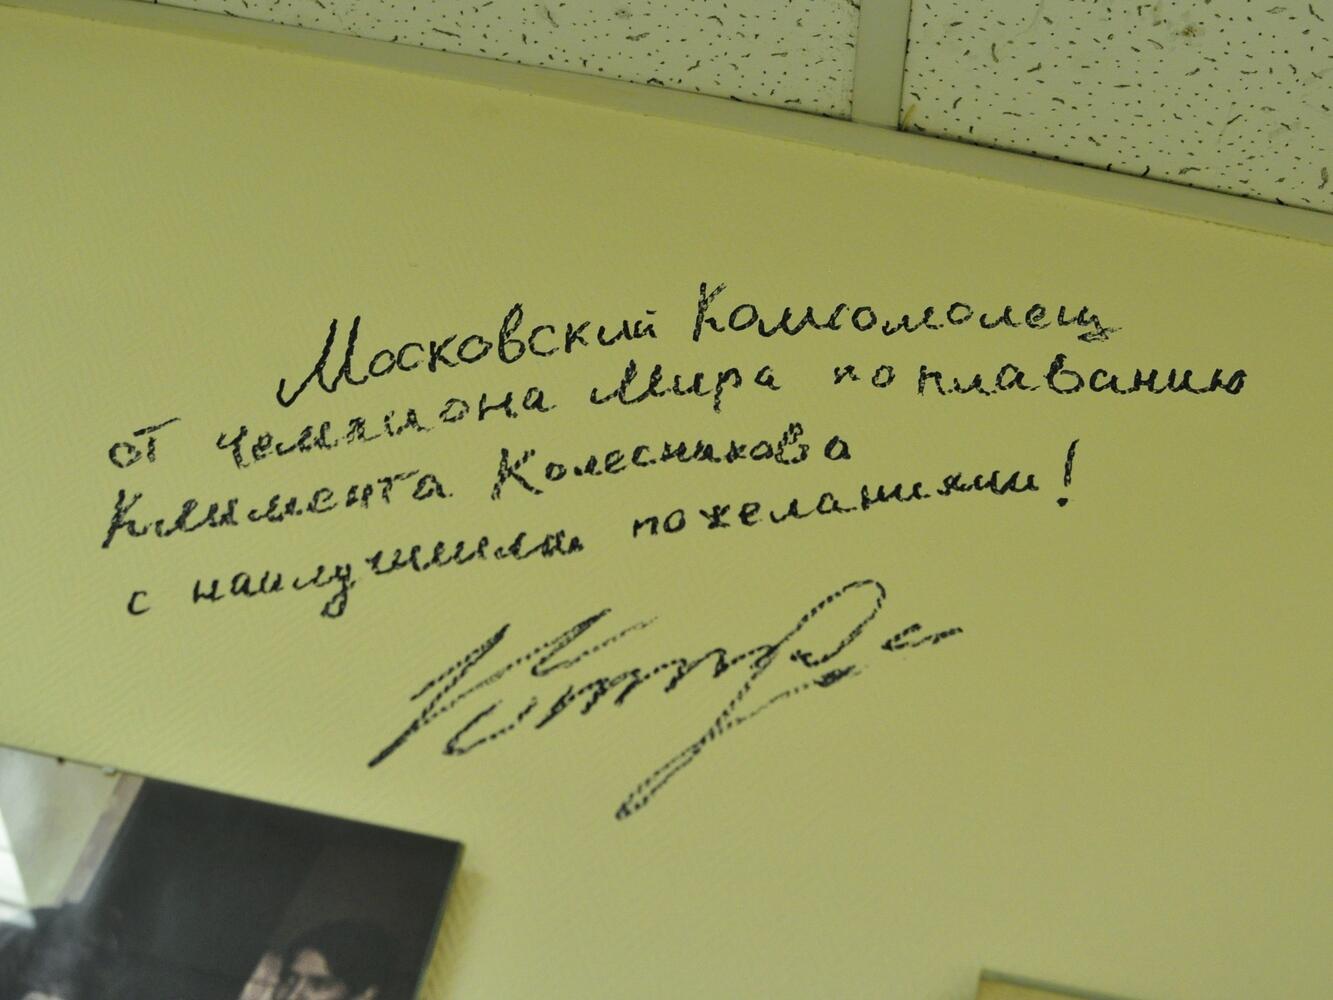 Московский Комсомолец
от чемпиона Мира по плаванию
Климента Колесникова
с наилучшими пожеланиями!